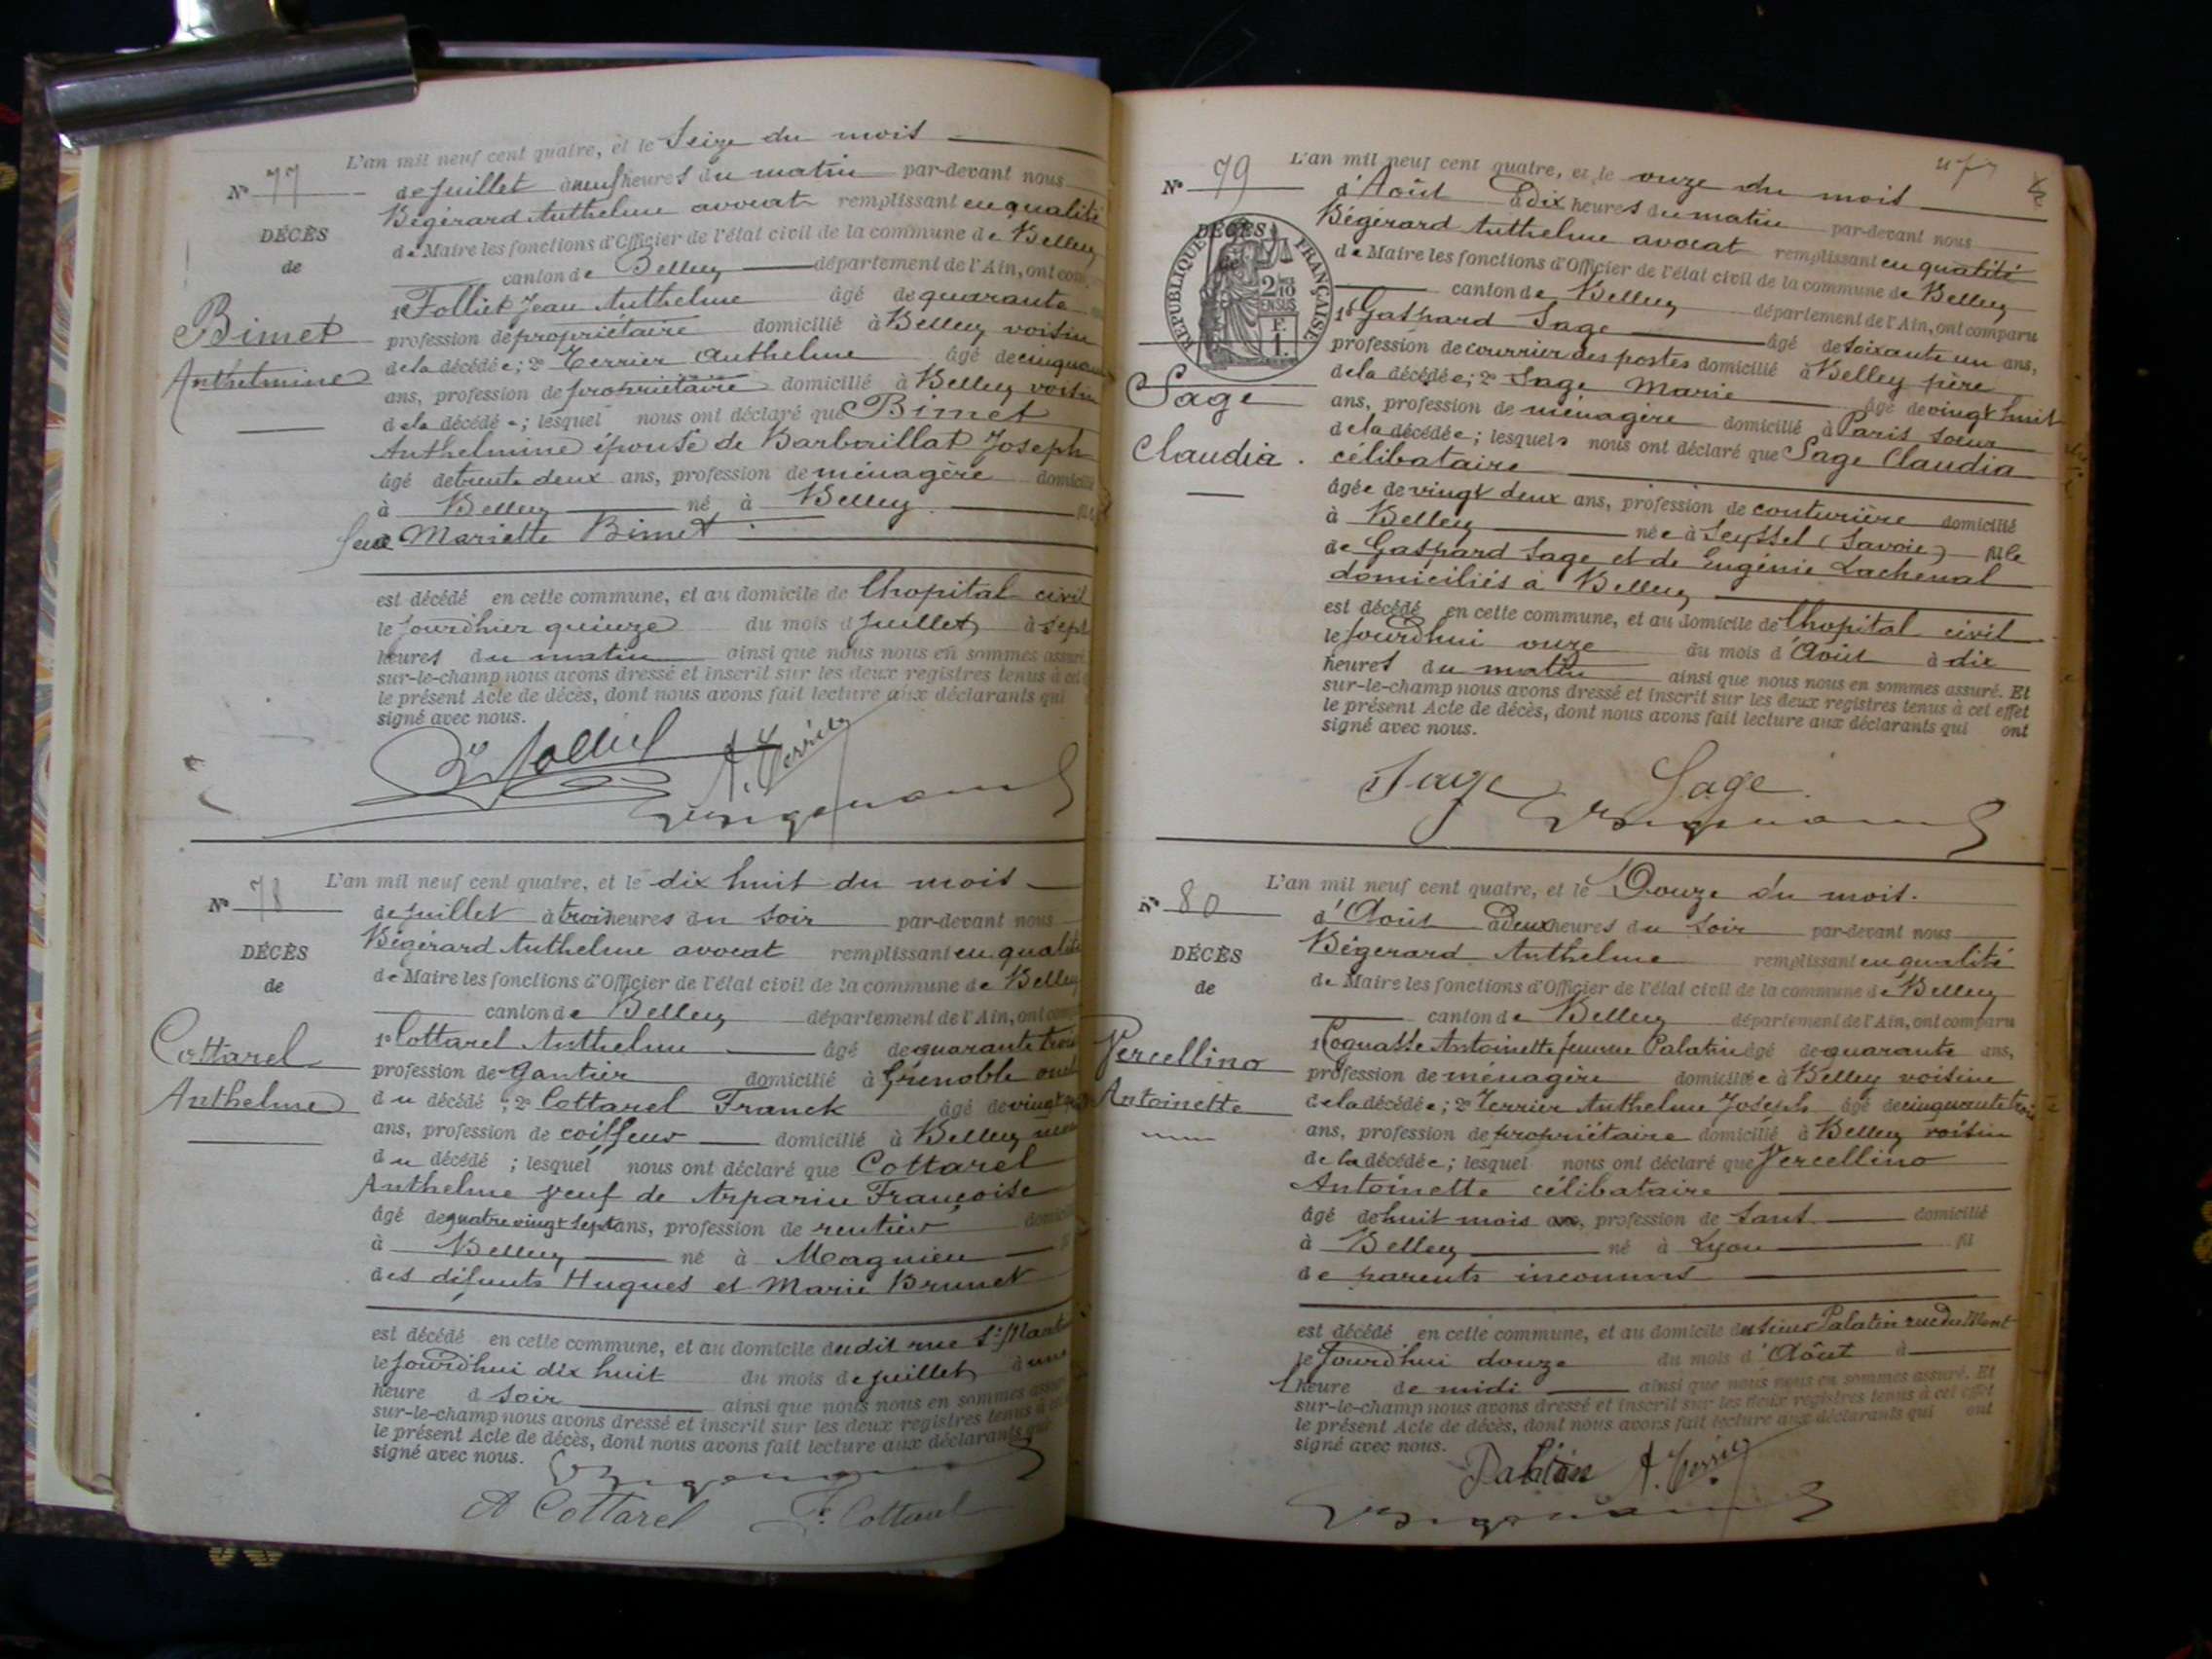 L'an mil neuf cent quatre, et le Seize du mois
N° 77
de Juillet à neuf heures du matin par-devant nous
Bégérard Anthelme avocat remplissant en qualité
DÉCÈS
de Maire les fonctions d'Officier de l'état civil de la commune de Belley
de
canton de Belley département de l'Ain, ont com
1° Folliet Jean Anthelme âgé de quarante
Bimet
profession de propriétaire domicilié à Belley voisin
de la décédée; 2° Terrier Anthelme âgé de cinquan
Anthelmine
ans, profession de propriétaire domicilié à Belley voisin
de la décédée; lesquel nous ont déclaré que Bimet
Anthelmine épouse de Barbarillat Joseph
âgé de trente deux ans, profession de ménagère domicilié
à Belley né à Belley
Mariette Bimet
est décédé en cette commune, et au domicile de l'hopital civil
le jourdhier quinze du mois d Juillet à sept
heures du matin ainsi que nous nous en sommes assuré
sur-le-champ nous avons dressé et inscrit sur les deux registres tenus à cet
le présent Acte de décès, dont nous avons fait lecture aux déclarants qui
signé avec nous.
Folliet A. Terrier
L'an mil neuf cent quatre, et le dix huit du mois
N° 78
de Juillet à trois heures du soir par-devant nous
Bégérard Anthelme avocat remplissant en qualité
DÉCÈS
de Maire les fonctions d'Officier de l'état civil de la commune de Belley
de
canton de Belley département de l'Ain, ont comp
1° Cottarel Anthelme âgé de quarante trois
Cottarel
profession de Gantier domicilié à Grenoble
du décédé; 2° Cottarel Franck âgé de vingt
Anthelme
ans, profession de coiffeur domicilié à Belley
du décédé; lesquel nous ont déclaré que Cottarel
Anthelme veuf de Arparin Françoise
âgé de quatre vingt sept ans, profession de rentier domicilié
à Belley né à Magnieu
des défunts Hugues et Marie Brunet
est décédé en cette commune, et au domicile dudit rue St
le Jourd'hui dix huit du mois de Juillet à une
heure d soir ainsi que nous nous en sommes assuré
sur-le-champ nous avons dressé et inscrit sur les deux registres tenus à
le présent Acte de décès, dont nous avons fait lecture aux déclarants qui
signé avec nous.
A Cottarel F. Cottarel
47
L'an mil neuf cent quatre, et le onze du mois
N° 79
d'Août à dix heures du matin par-devant nous
Bégérard Anthelme avocat remplissant en qualité
DÉCÈS
de Maire les fonctions d'Officier de l'état civil de la commune de Belley
RÉPUBLIQUE FRANÇAISE
2/10 EN SUS
F. 1.
canton de Belley département de l'Ain, ont comparu
1° Gaspard Sage âgé de soixante un ans,
profession de courrier des postes domicilié à Belley père
Sage
de la décédée; 2° Sage Marie âgé de vingt huit
ans, profession de ménagère domicilié à Paris soeur
Claudia
de la décédée; lesquels nous ont déclaré que Sage Claudia
célibataire
âgée de vingt deux ans, profession de couturière domicilié
à Belley née à Seyssel (Savoie) fille
de Gaspard Sage et de Eugénie Lachenal
domiciliés à Belley
est décédé en cette commune, et au domicile de l'hopital civil
le Jourd'hui onze du mois d'Août à dix
heures du matin ainsi que nous nous en sommes assuré. Et
sur-le-champ nous avons dressé et inscrit sur les deux registres tenus à cet effet
le présent Acte de décès, dont nous avons fait lecture aux déclarants qui ont
signé avec nous.
Sage Sage
L'an mil neuf cent quatre, et le Douze du mois.
N° 80
d'Août à Deux heures du soir par-devant nous
Bégerard Anthelme remplissant en qualité
DÉCÈS
de Maire les fonctions d'Officier de l'état civil de la commune de Belley
de
canton de Belley département de l'Ain, ont comparu
1° Coquasse Antoinette femme Palatin âgé de quarante ans,
Vercellino
profession de ménagère domiciliée à Belley voisine
Antoinette
de la décédée; 2° Terrier Anthelme Joseph âgé de cinquante trois
ans, profession de propriétaire domicilié à Belley voisin
de la décédée; lesquel nous ont déclaré que Vercellino
Antoinette célibataire
âgé de huit mois ans, profession de Sans domicilié
à Belley né à Lyon fil
de parents inconnus
est décédé en cette commune, et au domicile du sieur Palatin rue du Mont
le Jourd'hui douze du mois d'Août à
1 heure de midi ainsi que nous nous en sommes assuré. Et
sur-le-champ nous avons dressé et inscrit sur les deux registres tenus à cet effet
le présent Acte de décès, dont nous avons fait lecture aux déclarants qui ont
signé avec nous.
Palatin A. Terrier